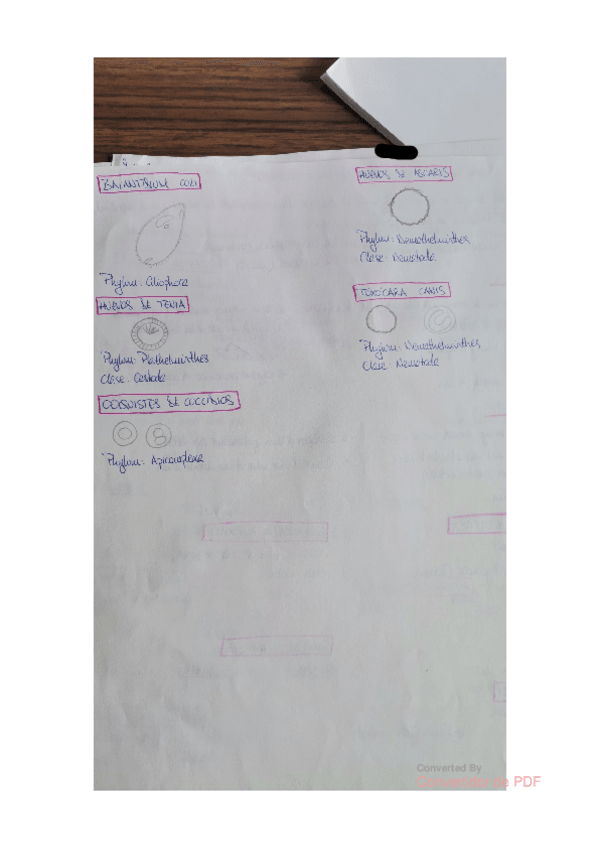 BALANTIDIUM COLI
Phylum: Ciliophora
HUEVOS DE TENIA
Phylum: Plathelminthes
Clase: Cestoda
OOQUISTES DE COCCIDIOS
Phylum: Apicomplexa
HUEVOS DE ASCARIS
Phylum: Nemathelminthes
Clase: Nematoda
TOXOCARA CANIS
Phylum: Nemathelminthes
Clase: Nematoda
Converted By
PDF